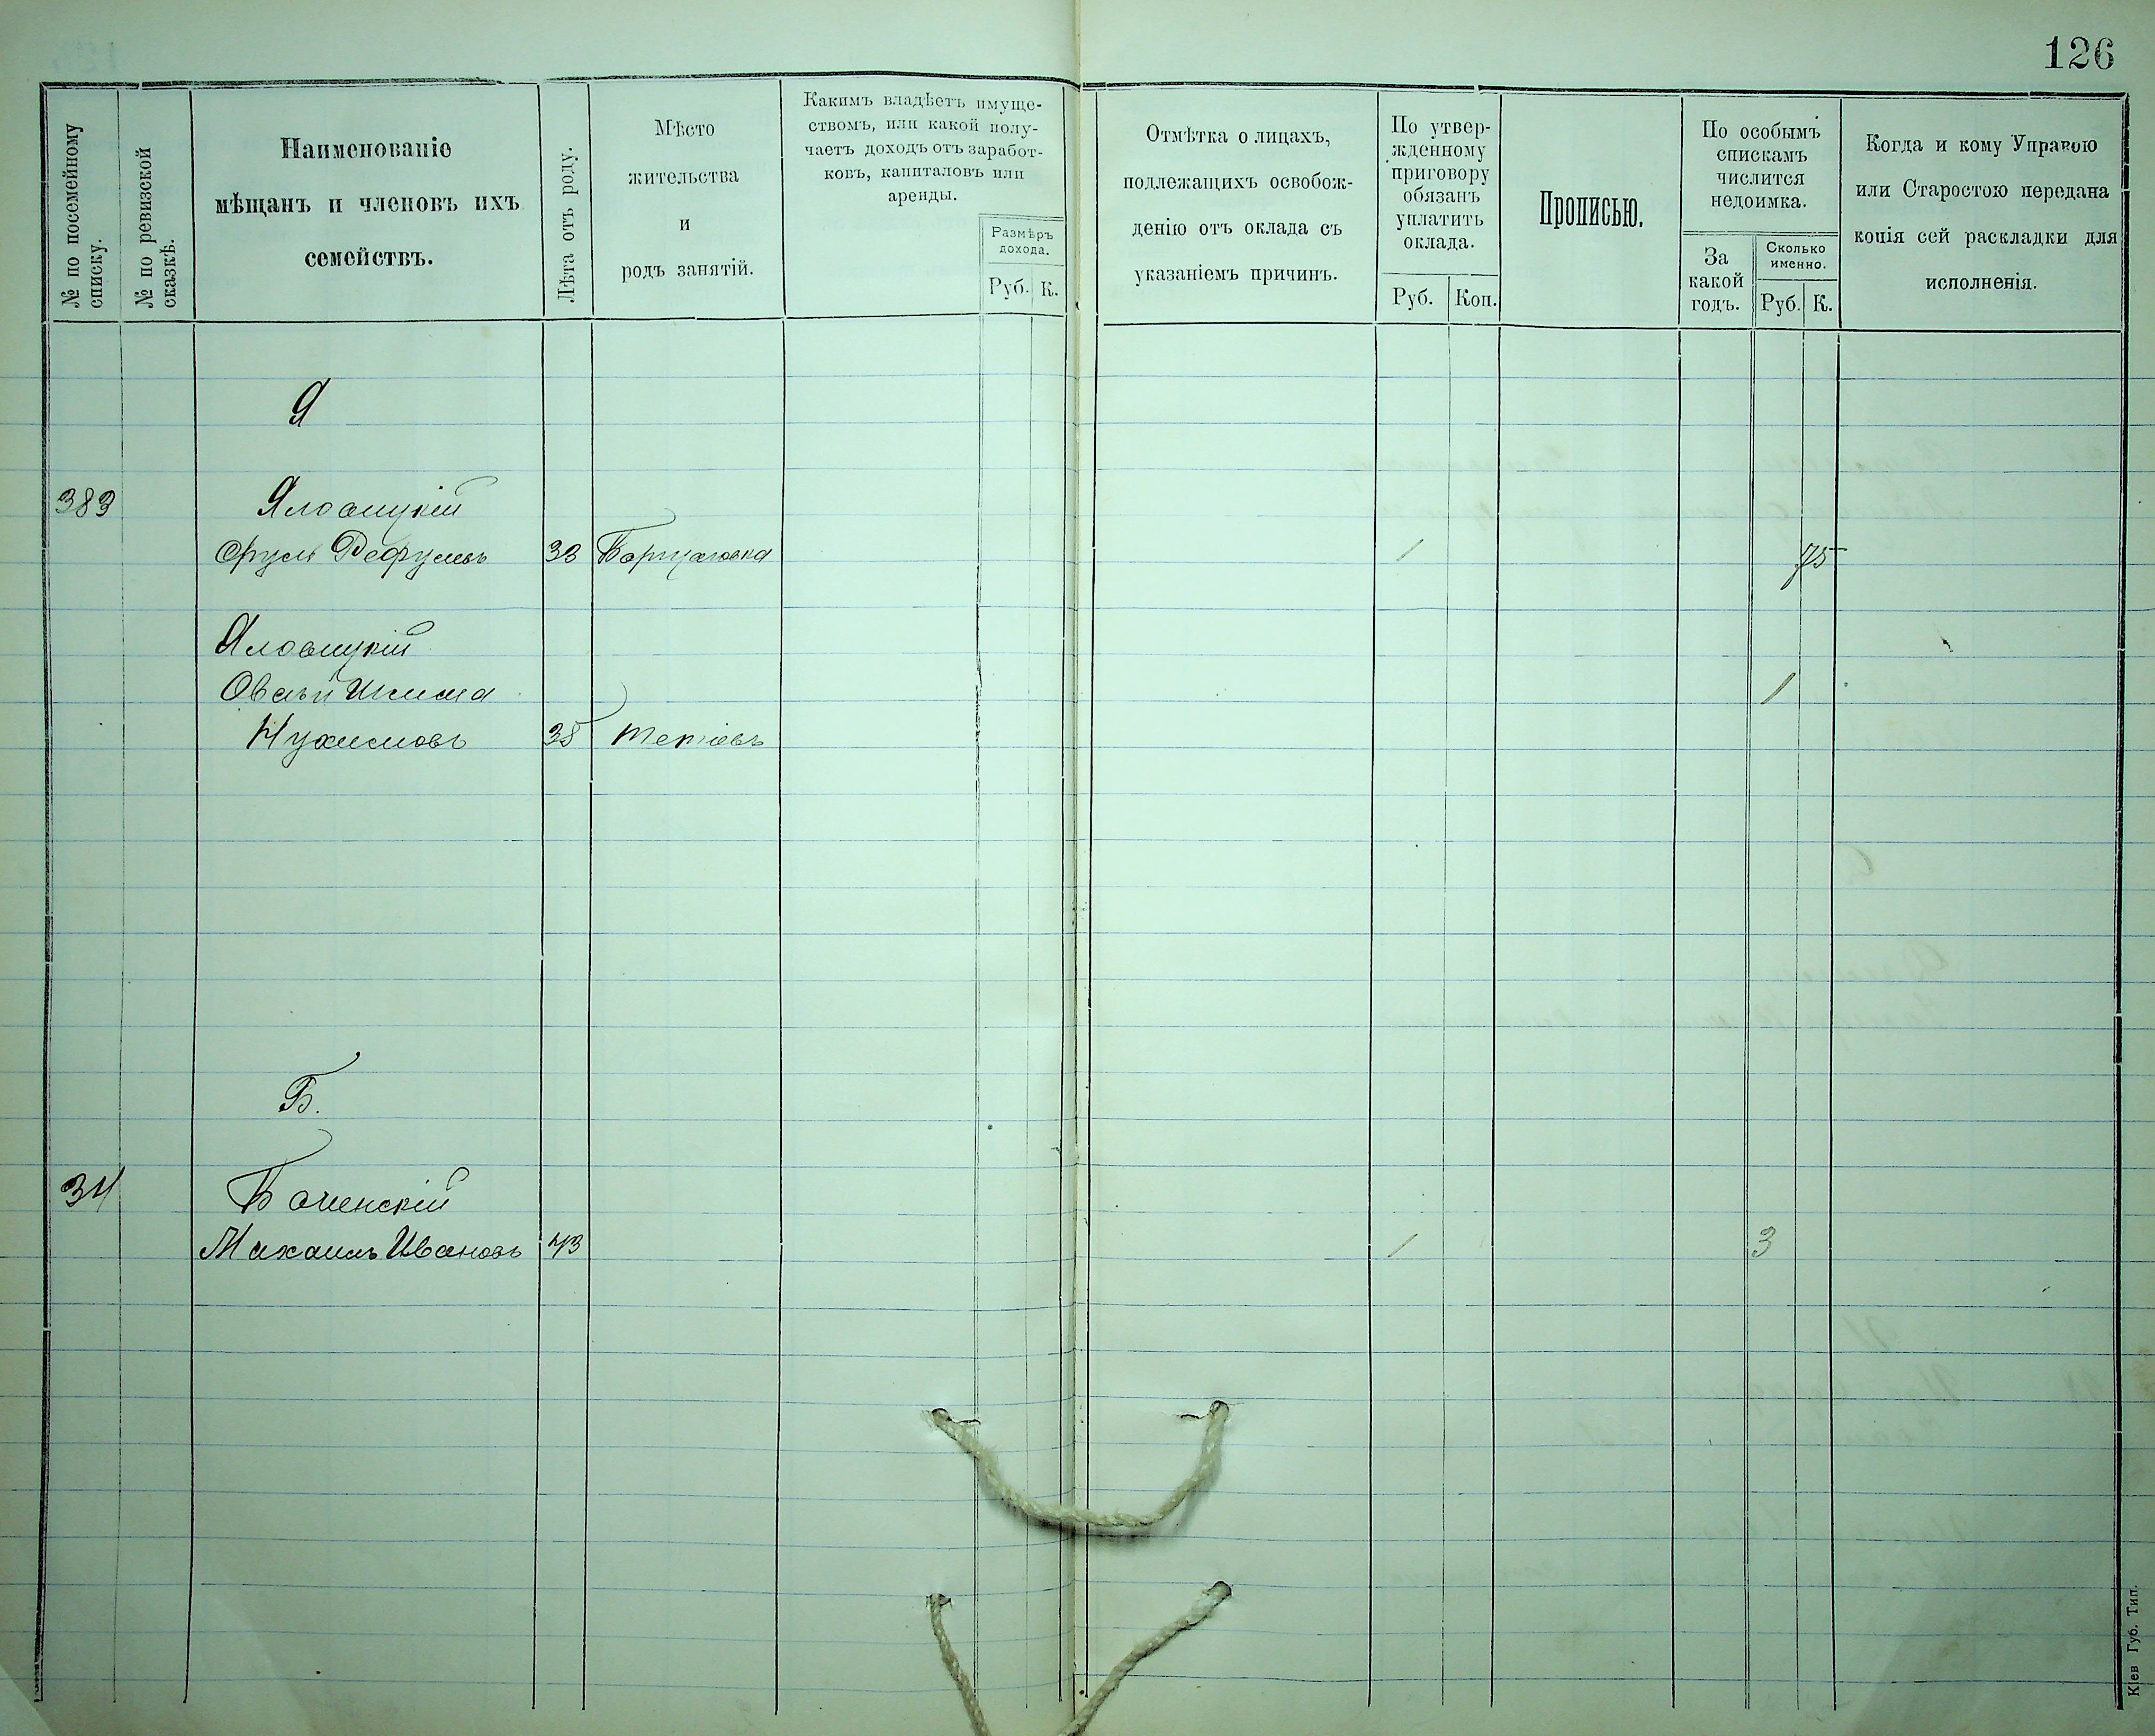 126
№ по посемейному списку.
№ по ревизской сказкѣ.
Наименованіе
мѣщанъ и членовъ ихъ
семействъ.
Лѣта отъ роду.
Мѣсто
жительства
и
родъ занятій.
Какимъ владѣетъ имуще-
ствомъ, или какой полу-
чаетъ доходъ отъ заработ-
ковъ, капиталовъ или
аренды.
Размѣръ
дохода.
Руб. К.
Отмѣтка о лицахъ,
подлежащихъ освобож-
денію отъ оклада съ
указаніемъ причинъ.
По утвер-
жденному
приговору
обязанъ
уплатить
оклада.
Руб. Коп.
Прописью.
По особымъ
спискамъ
числится
недоимка.
За
какой
годъ.
Сколько
именно.
Руб. К.
Когда и кому Управою
или Старостою передана
копія сей раскладки для
исполненія.
Я
383 Яловицкій
Сруль 33 1 75
Яловицкій
Овсей 1
Нухимовъ 38 Тетіевъ
Б.
34
Михаилъ Ивановъ 43 1 3
Кіев Губ. Тип.